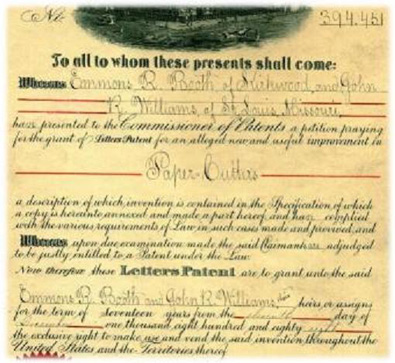 No. 394.451
To all to whom these presents shall come:
Whereas Emmons R. Booth of Kirkwood, and John
R. Williams, of St. Louis, Missouri,
have presented to the Commissioner of Patents a petition praying
for the grant of Letters Patent for an alleged new and useful improvement in
Paper-Cutters
a description of which invention is contained in the Specification of which
a copy is hereunto annexed and made a part hereof, and have complied
with the various requirements of Law in such cases made and provided, and
Whereas upon due examination made the said Claimants are adjudged
to be justly entitled to a Patent under the Law.
Now therefore these Letters Patent are to grant unto the said
Emmons R. Booth and John R. Williams, their heirs or assigns
for the term of seventeen years from the day of
December one thousand eight hundred and eighty eight
the exclusive right to make use and vend the said invention throughout the
United States and the Territories thereof.